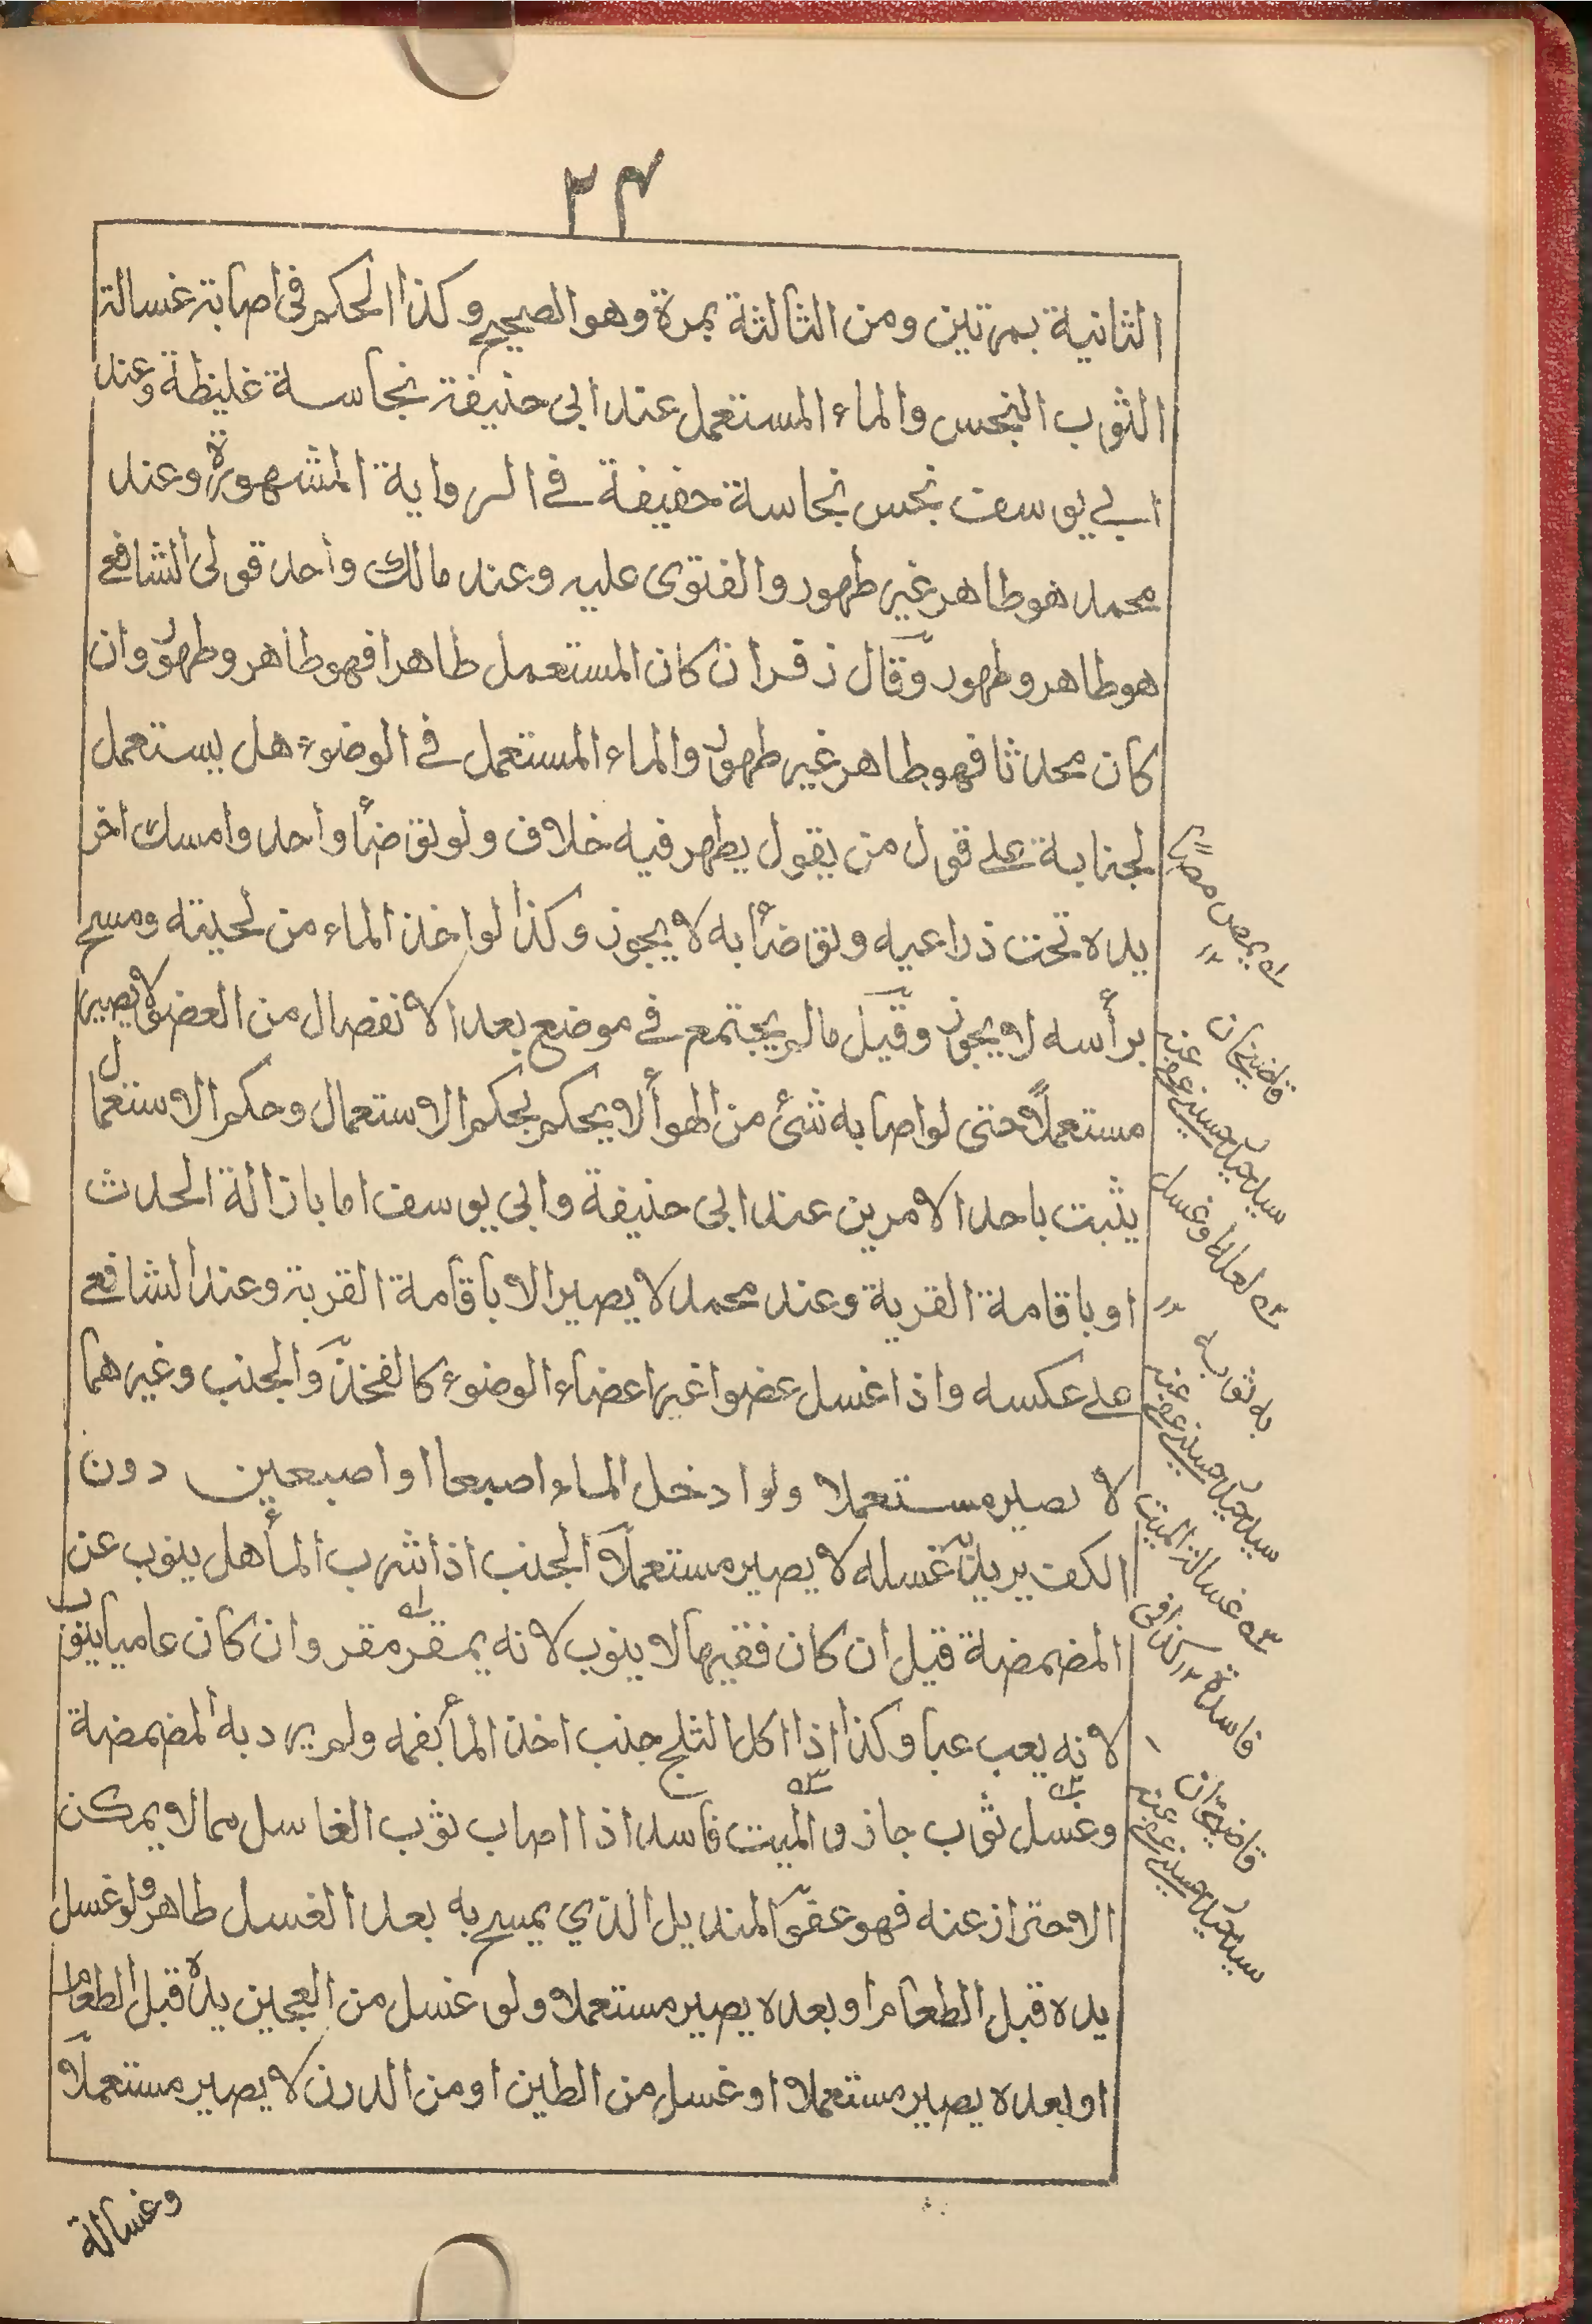 ٢٤
الثانية بمرتين ومن الثالثة بمرة وهو الصحيح وكذا الحكم فى اصابة غسالة
الثوب النجس والماء المستعمل عند ابى حنيفة نجاسة غليظة وعند
ابي يوسف نجس نجاسة خفيفة في الرواية المشهورة وعند
محمد هو طاهر غير طهور والفتوى عليه وعند مالك واحد قولى الشافعي
هو طاهر وطهور وقال زفر ان كان المستعمل طاهرا فهو طاهر وطهور وان
كان محدثا فهو طاهر غير طهور والماء المستعمل في الوضوء هل يستعمل
لجنابة على قول من يقول يطهر فيه خلاف ولو توضأ واحد وامسك اخر
يده تحت ذراعيه وتوضأ به لا يجوز وكذا لو اخذ الماء من لحيته ومسح
برأسه لا يجوز وقيل مالم يجتمع في موضع بعد الانفصال من العضو لا يصير
مستعملاً حتى لو اصابه شئ من الهوأ لا يحكم بحكم الاستعمال وحكم الاستعمال
يثبت باحد الامرين عند ابى حنيفة وابي يوسف اما بازالة الحدث
او باقامة القربة وعند محمد لا يصير الا باقامة القربة وعند الشافعي
على عكسه واذا غسل عضوا غير اعضاء الوضوء كالفخذ والجنب وغيرهما
لا يصير مستعملا ولو ادخل الماء اصبعا او اصبعين دون
الكف يريد غسله لا يصير مستعملاً الجنب اذا شرب المأ هل ينوب عن
المضمضة قيل ان كان فقيها لا ينوب لانه يمقر مقر وان كان عاميا ينوب
لانه يعب عبا وكذا اذا اكل الثلج جنب اخذ المأ بفمه ولم يرد به المضمضة
وغسل ثوب جاز والميت فاسد اذا اصاب ثوب الغاسل مما لا يمكن
الاحتراز عنه فهو عفو المنديل الذي يمسح به بعد الغسل طاهر ولو غسل
يده قبل الطعام او بعده يصير مستعملا ولو غسل من العجين يده قبل الطعام
او بعده يصير مستعملا او غسل من الطين او من الدرن لا يصير مستعملاً
وغسالة
له يمص مصاً ١٢
قاضيخان
له لعله وغسل
به ثوبه ١٢
له غسالة الميت
فاسدة ١٢ كذا فى
قاضيخان